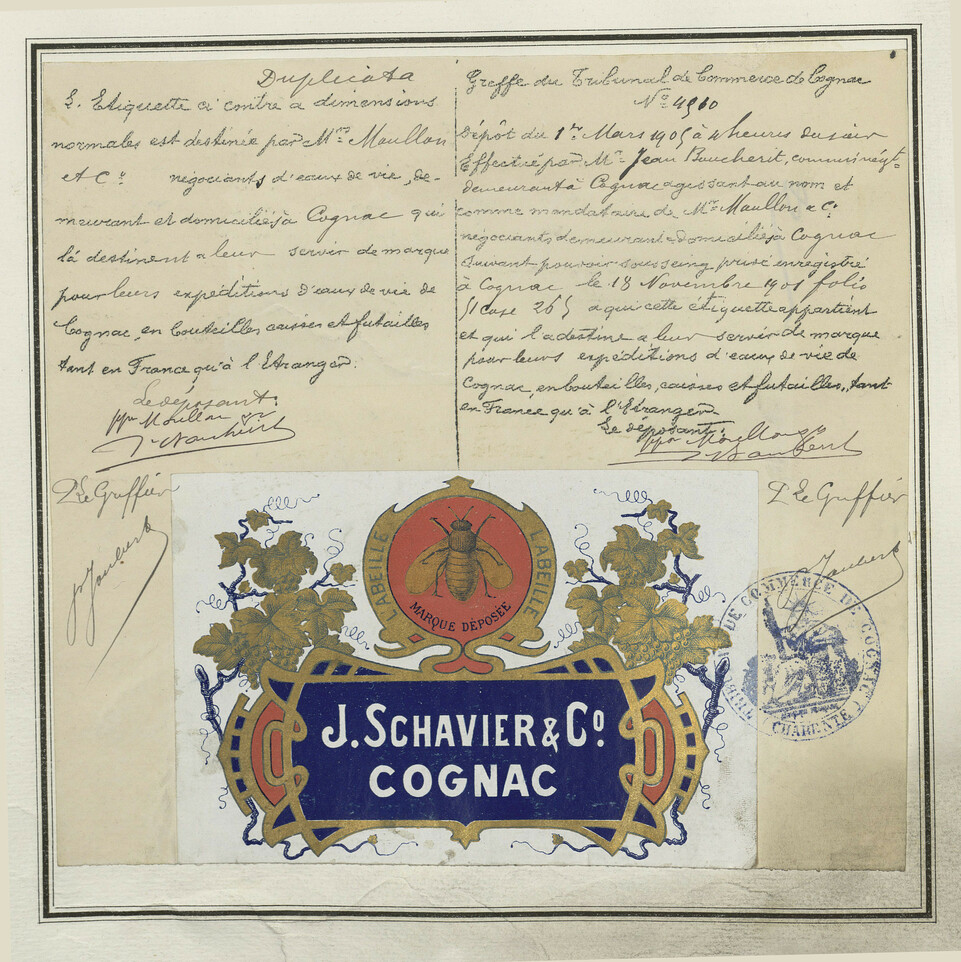 Duplicata
L'Etiquette ci contre a dimensions
normales est destinée par Mrs Moullon
et Co négociants d'eaux de vie, de-
meurant et domiciliés à Cognac qui
la destinent a leur servir de marque
pour leurs expéditions d'eaux de vie de
Cognac, en bouteilles caisses et futailles
tant en France qu'à l'Etranger.
Le déposant:
ppon Moullon
P Le Greffier
Greffe du Tribunal de Commerce de Cognac
No 4910
Dépôt du 1er Mars 1905 à 4 heures du soir
Effectué par Mr Jean Boucherit, commis négt
demeurant à Cognac agissant au nom et
comme mandataire de Mrs Moullon & Co
négociants demeurant & domiciliés à Cognac
suivant pouvoir sous seing privé enregistré
à Cognac le 18 Novembre 1901 folio
51 case 265 a qui cette étiquette appartient
et qui la destine a leur servir de marque
pour leurs expéditions d'eaux de vie de
Cognac, en bouteilles, caisses et futailles, tant
en France qu'à l'Etranger
Le déposant:
ppon Moullon
P Le Greffier
LABEILLE LABEILLE
MARQUE DÉPOSÉE
J. SCHAVIER & Co.
COGNAC
DE COMMERCE DE COGNAC
CHARENTE